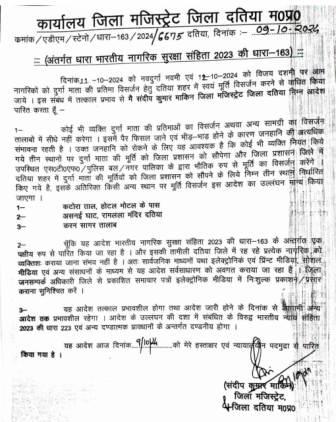 कार्यालय जिला मजिस्ट्रेट जिला दतिया म0प्र0
कमांक/एडीएम/स्टेनो/धारा-163/2024/6675 दतिया, दिनांक:- 09-10-2024
:: (अंतर्गत धारा भारतीय नागरिक सुरक्षा संहिता 2023 की धारा-163) ::
दिनांक 11-10-2024 को नवदुर्गा नवमी एवं 12-10-2024 को विजय दशमी पर आम
नागरिकों को दुर्गा माता की प्रतिमा विसर्जन हेतु दतिया शहर में स्वयं मूर्ति विसर्जन करने से बाधित किया
जाये। इस संबंध में तत्काल प्रभाव से मै संदीप कुमार माकिन जिला मजिस्ट्रेट जिला दतिया निम्न आदेश
पारित करता हूँ –
1- कोई भी व्यक्ति दुर्गा माता की प्रतिमाओं का विसर्जन अथवा अन्य सामग्री का विसर्जन
तालाबो में सीधे नहीं करेगा। इसमें पैर फिसल जाने एवं भीड़-भाड़ होने के कारण जनहानि की अत्यधिक
संभावना रहती है। उक्त जनहानि को रोकने के लिए यह आवश्यक है कि कोई भी व्यक्ति नियत किये
गये तीन स्थानों पर दुर्गा माता की मूर्ति को जिला प्रशासन को सौपेगा और जिला प्रशासन जिले में
उपस्थित एस0डी0ए0फ0/पुलिस बल/नगर पालिका के द्वारा भौतिक रूप से मूर्ति का विसर्जन करेंगे।
दतिया शहर में दुर्गा माता की मूर्तियों को जिला प्रशासन को सौपने के लिये निम्न तीन स्थान निर्धारित
किए गये है, इसके अतिरिक्त किसी अन्य स्थान पर मूर्ति विसर्जन इस आदेश का उल्लंघन मान्य किया
जाएगा।
1- कटोरा ताल, होटल मोटल के पास
2- असनई घाट, रामलला मंदिर दतिया
3- करन सागर तालाब
2- चूंकि यह आदेश भारतीय नागरिक सुरक्षा संहिता 2023 की धारा-163 के अन्तर्गत एक
पक्षीय रुप से पारित किया जा रहा है। और इसकी तामीली दतिया जिले में रह रहे प्रत्येक नागरिक को
व्यक्तिशः कराया जाना संभव नहीं है। अतः सार्वजनिक माध्यमों यथा इलेक्ट्रोनिक एवं प्रिन्ट मीडिया, सोशल
मीडिया एवं अन्य संसाधनों के माध्यम से यह आदेश सर्वसाधारण को अवगत कराया जा रहा है। जिला
जनसम्पर्क अधिकारी जिले से प्रकाशित समाचार पत्रों इलेक्ट्रोनिक मीडिया में निःशुल्क प्रकाशन/प्रसार
कराना सुनिश्चित करें।
3- यह आदेश तत्काल प्रभावशील होगा तथा आदेश जारी होने के दिनांक से आगामी अन्य
आदेश तक प्रभावशील रहेगा। आदेश के उल्लंघन की दशा में संबंधित के विरुद्ध भारतीय न्याय संहिता
2023 की धारा 223 एवं अन्य दण्डात्मक प्रावधानों के अन्तर्गत दण्डनीय होगा।
यह आदेश आज दिनांक 9/10/24 को मेरे हस्ताक्षर एवं न्यायालयीन पदमुद्रा से पारित
किया गया है।
(संदीप कुमार माकिन)
जिला मजिस्ट्रेट,
जिला दतिया म0प्र0